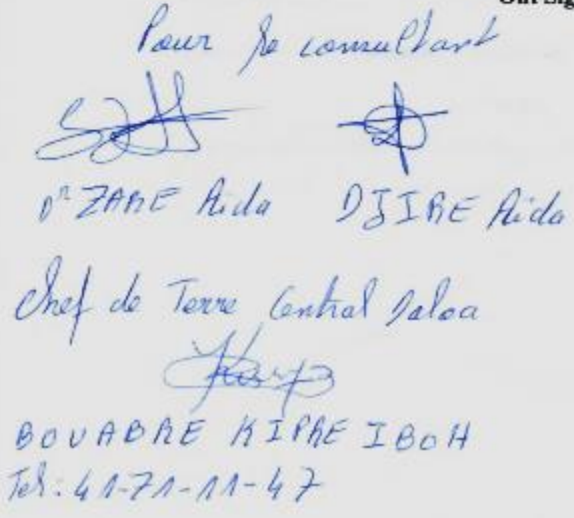 Pour le consultant
Dr ZARE Aida DJIRE Aida
Chef de Terre Central Daloa
BOUABRE KIPRE IBOH
Tel: 41-71-11-47